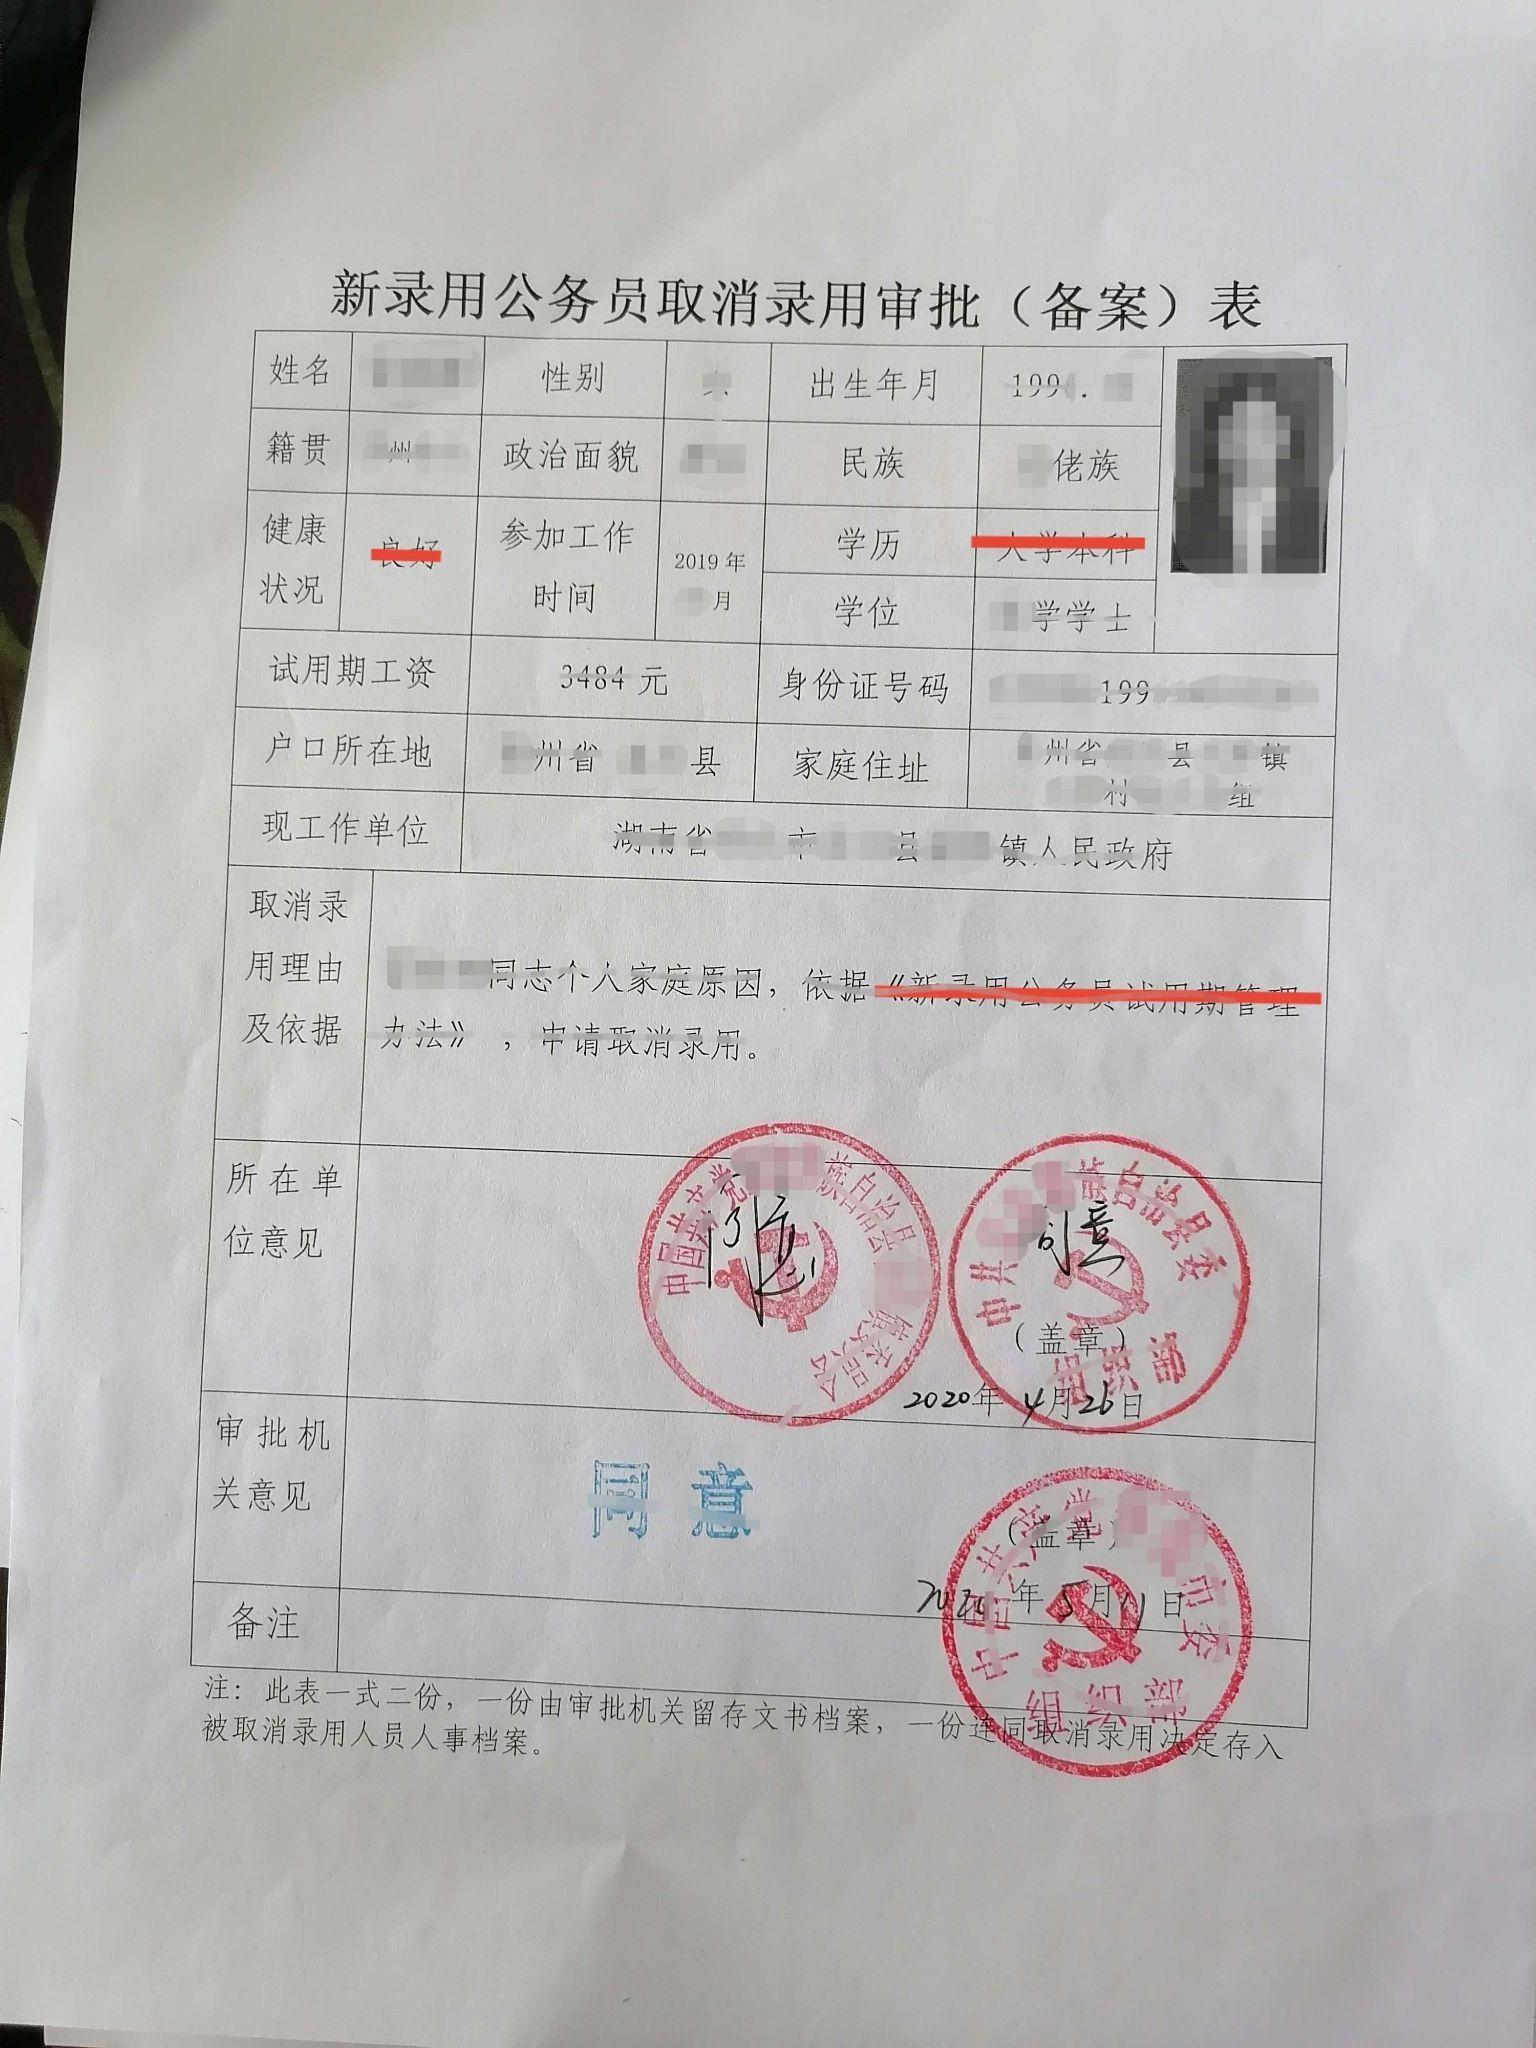 新录用公务员取消录用审批（备案）表
姓名 性别 出生年月 199
籍贯 州 政治面貌 民族 佬族
健康状况 良好 参加工作时间 2019年 月 学历 大学本科
学位 学学士
试用期工资 3484元 身份证号码 199
户口所在地 州省 县 家庭住址 州省 县 镇
村 组
现工作单位 湖南省 市 县 镇人民政府
取消录用理由及依据
同志个人家庭原因，依据《新录用公务员试用期管理
办法》，申请取消录用。
所在单位意见
中国共产党 族自治县 镇委员会
同意
中共 族自治县委
组织部
同意
（盖章）
2020年4月26日
审批机关意见
同意
（盖章）
中国共产党 市委
组织部
2020年5月11日
备注
注：此表一式二份，一份由审批机关留存文书档案，一份连同取消录用决定存入
被取消录用人员人事档案。